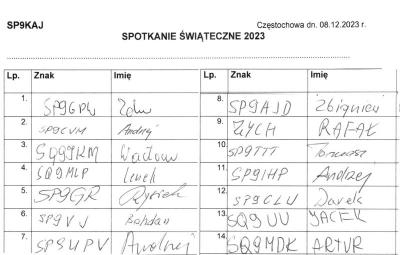 SP9KAJ Częstochowa dn. 08.12.2023 r.
SPOTKANIE ŚWIĄTECZNE 2023
Lp. Znak Imię Lp. Znak Imię
1. SP9GPW 8. SP9AJD Zbigniew
2. SP9CVM Andrzej 9. ZYCH RAFAŁ
3. Wacław 10. SP9TTT Tomasz
4. SQ9MLP Lunek 11. SP9IHP Andrzej
5. SP9GR Rysiek 12. SP9CLU Darek
6. SP9VJ Bohdan 13. SQ9UU JACEK
7. SP9UPV 14. SQ9MDK ARTUR